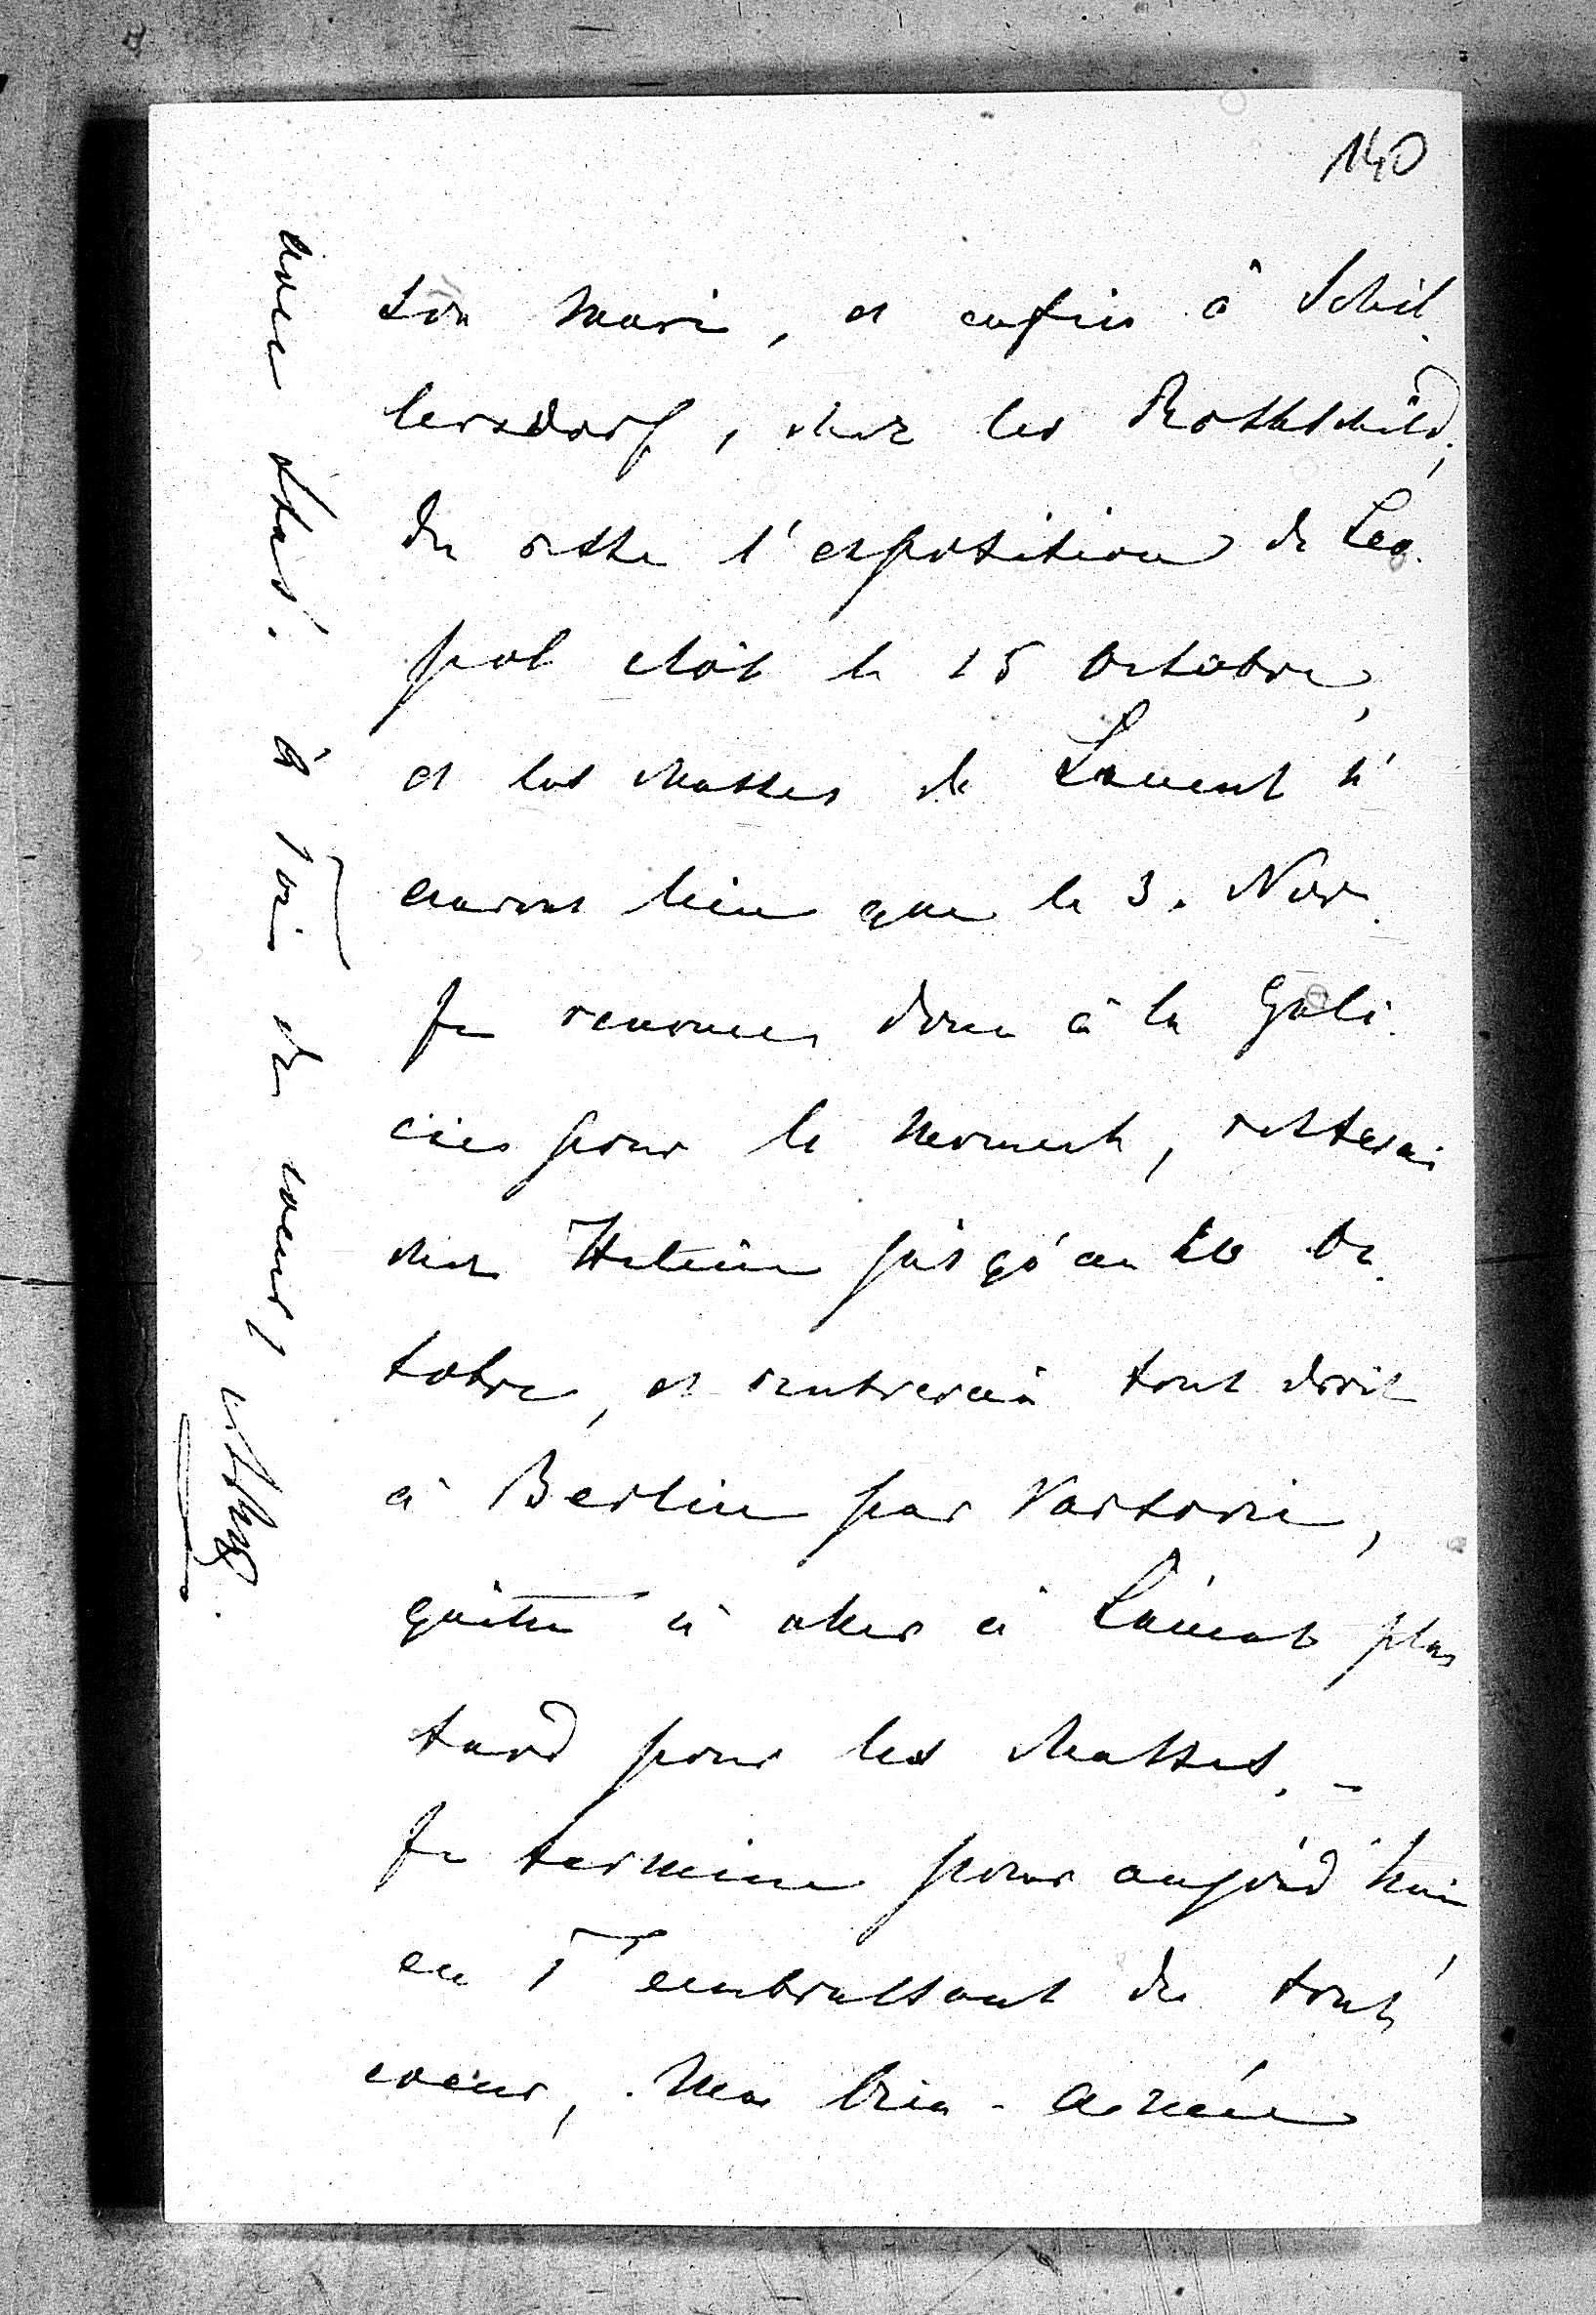 140
son mari, et enfin à Schil-
lersdorf, chez les Rothschild;
du reste l'exposition de Leo-
pol clôt le 15 Octobre,
et les chasses de Lancut n'
auront lieu que le 3. Nov.
Je renonce donc à la Gali-
cie pour le moment, resterai
chez Hélène jusqu'au 20 Oc-
tobre, et rentrerai tout droit
à Berlin par Varsovie,
quitte à aller à Lancut plus
tard pour les chasses. –
Je termine pour aujourd'hui
en T'embrassant de tout
coeur, Ma bien-aimée
à Toi de coeur,